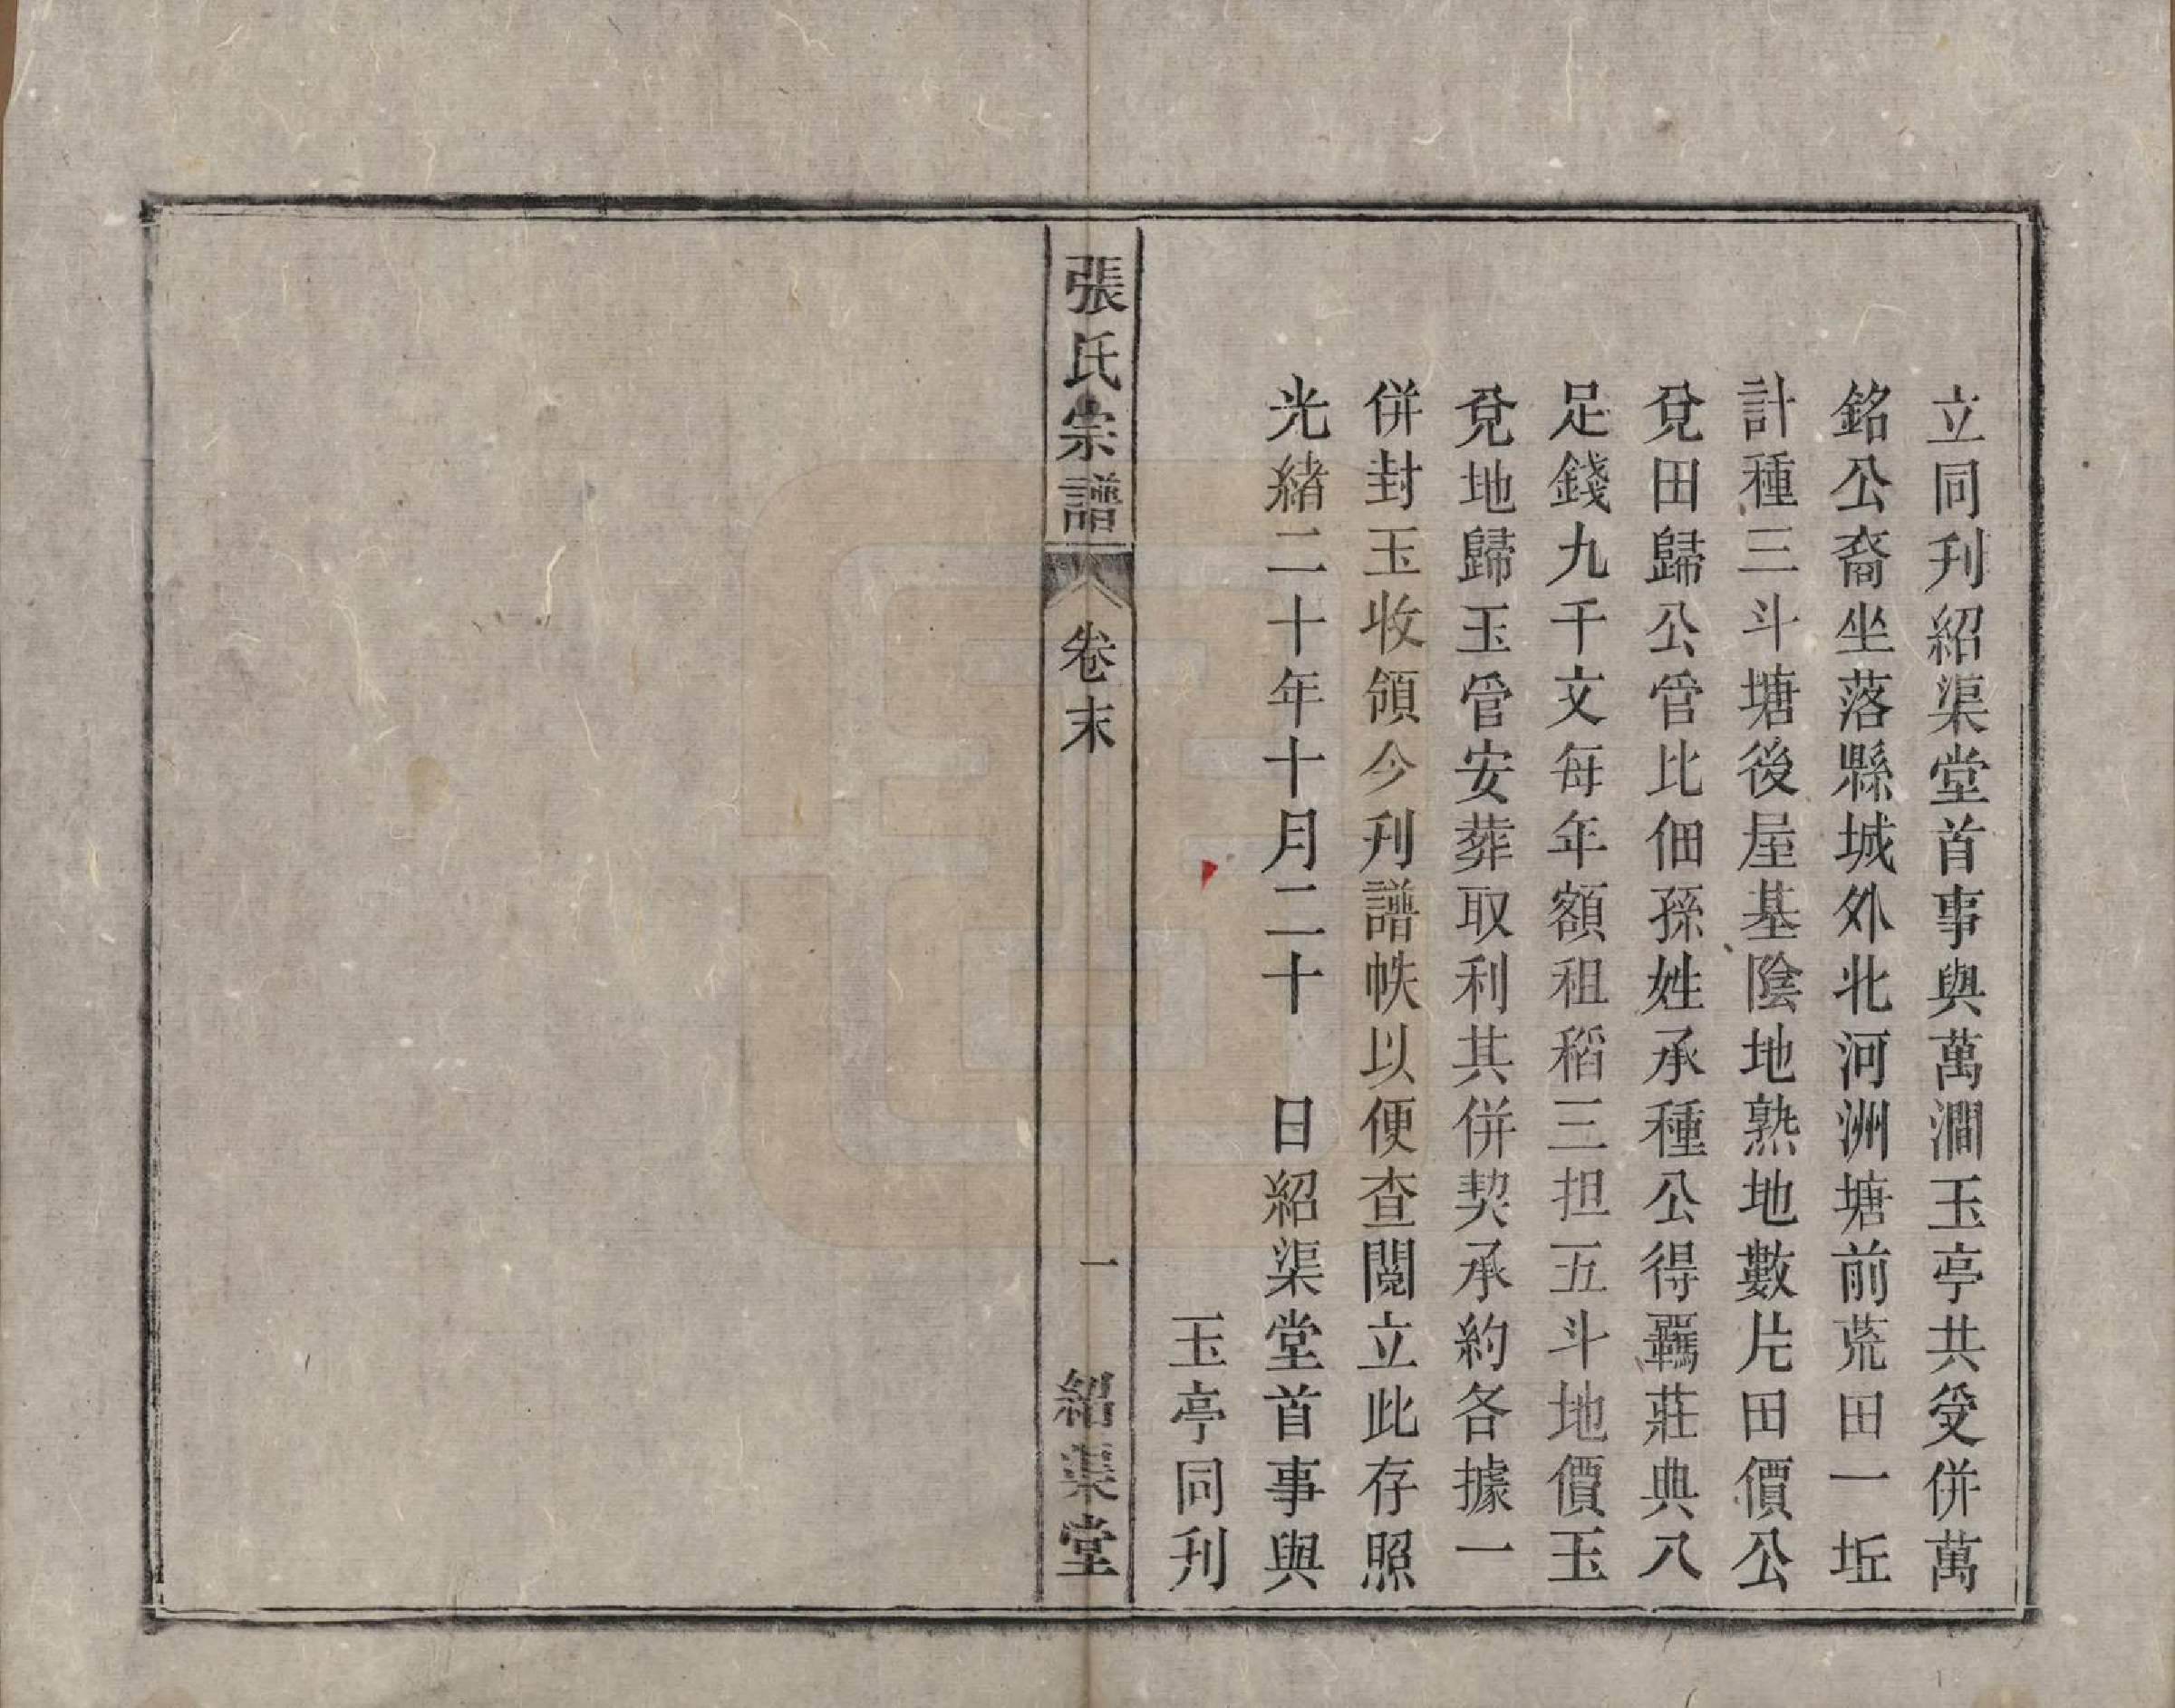 立同刋紹渠堂首事與萬澗玉亭共受併萬
銘公裔坐落縣城外北河洲塘前荒田一坵
計種三斗塘後屋基陰地熟地數片田價公
兌田歸公管比佃孫姓承種公得羈莊典八
足錢九千文每年額租稻三担五斗地價玉
兌地歸玉管安葬取利其併契承約各據一
併封玉收領今刋譜帙以便查閱立此存照
光緒二十年十月二十 日紹渠堂首事與
玉亭同刋
張氏宗譜 卷末 一 紹渠堂